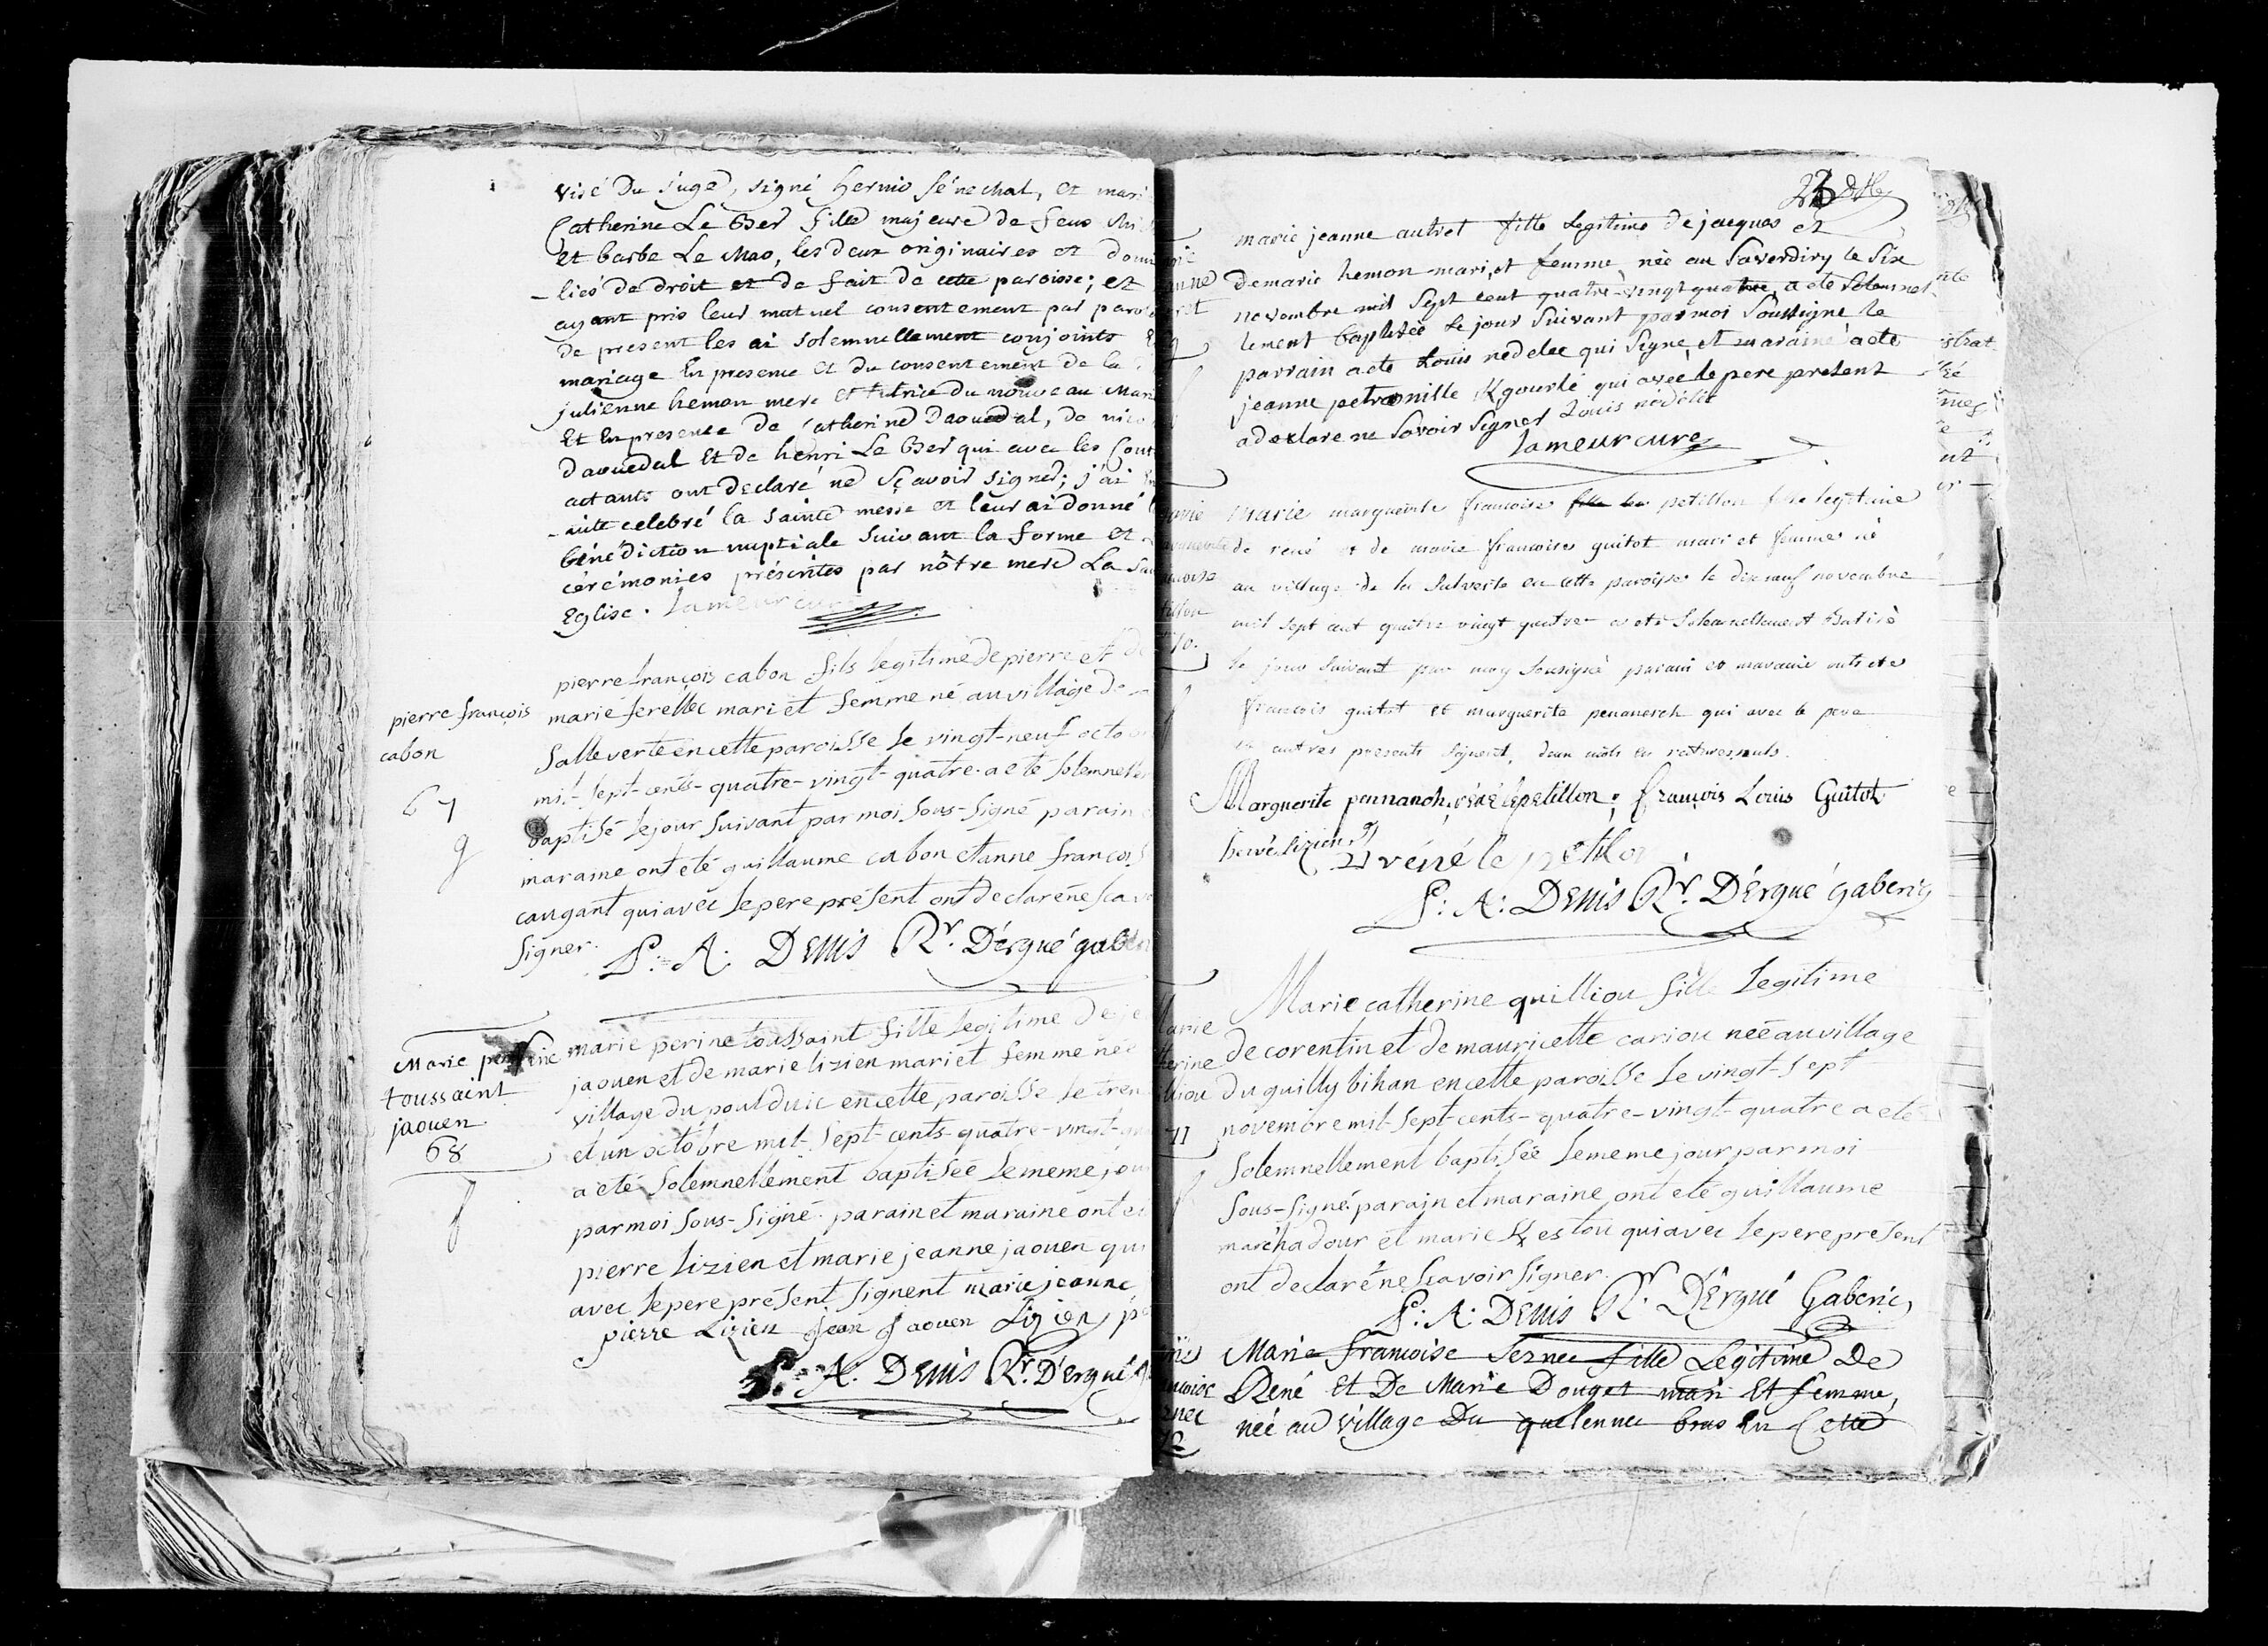 visé Du juge, signé hernio sénechal, et mari
Catherine Le Ber fille majeure de feus
et barbe Le Mao, les deux originaires et domi
-liés de droit et de fait de cette paroisse; et
ayant pris leur mutuel consentement par parol
de present les ai solemnellement conjoints
mariage En presence et du consentement de la
julienne hemon mere et tutrice du nouveau Mari
Et En presence de Catherine Daouedal, de nico
daouedal Et de henri Le Ber qui avec les Cont
actants ont declaré ne Sçavoir signer; j'ai En
-uite celebré la sainte messe et leur ai donné
bénédiction nuptiale suivant la forme et
cérémonies présentés par nôtre mere La Sai
Eglise. Lameur curé
pierre françois
cabon
67
g
pierre françois cabon fils legitime de pierre et de
marie ferellec mari et femme né au village de
Salleverte en cette paroisse le vingt-neuf octo
mil-sept-cents-quatre-vingt-quatre a eté solemnelle
baptisé le jour suivant par moi sous-signé parain
maraine ont eté guillaume cabon et anne françois
caugant qui avec le pere présent ont declaré ne sca
signer.
L: A: DENIS Rr. D'Ergué gab
Marie perrine
toussaint
jaouen
68
f
marie perine toussaint fille legitime de je
jaouen et de marie lizien mari et femme née
village du poulduic en cette paroisse le tren
et un octobre mil-sept-cents-quatre-vingt-
a eté solemnellement baptisée le meme jou
par moi sous-signé. parain et maraine ont et
pierre lizien et marie jeanne jaouen qui
avec le pere présent signent marie jeanne
pierre Lizien jean jaouen Lizien
L: A: DENIS Rr. D'Ergué
marie jeanne autret fille Legitime de jacques et
de marie hemon mari et femme née au Saverdiry le Six
novembre mil Sept cent quatre-vingt quatre, a eté solemnel
lement baptisée le jour suivant par moi Soussigné le
parrain a eté Louis nedelec qui signe, et maraine a eté
jeanne petronille Kgourlé qui avec le pere present
a declare ne Savoir Signer Louis nédélec
Lameur curé
Marie marguerite francoise petillon fille legitime
de rené et de marie francoise guitot mari et femme né
au village de la Salverte en cette paroisse le dix neuf novembre
mil sept cent quatre vingt quatre a eté solemnellement Batisé
le jour suivant par moy sousigné parain et maraine onts etes
francois guitot et marguerite penanerch qui avec le pere
et autres presents signent, deux mots en
Marguerite pennanch, réné lepetillon, François Louis Guitot
hervé lizien
réné le petillon
L: A: DENIS Rr. D'Ergué gaberic
Marie catherine quilliou fille legitime
de corentin et de mauricette cariou née au village
du guilly bihan en cette paroisse le vingt-sept
novembre mil-sept-cents-quatre-vingt-quatre a eté
71
solemnellement baptisée le meme jour par moi
sous-signé. parain et maraine ont eté guillaume
marchadour et marie Kestou qui avec le pere présent
ont declaré ne scavoir signer.
L: A: DENIS Rr. D'Ergué Gaberic
Marie francoise Sernec fille Legitime De
René et De Marie Douget mari Et femme,
née au village Du quelennec bras En Cette
72